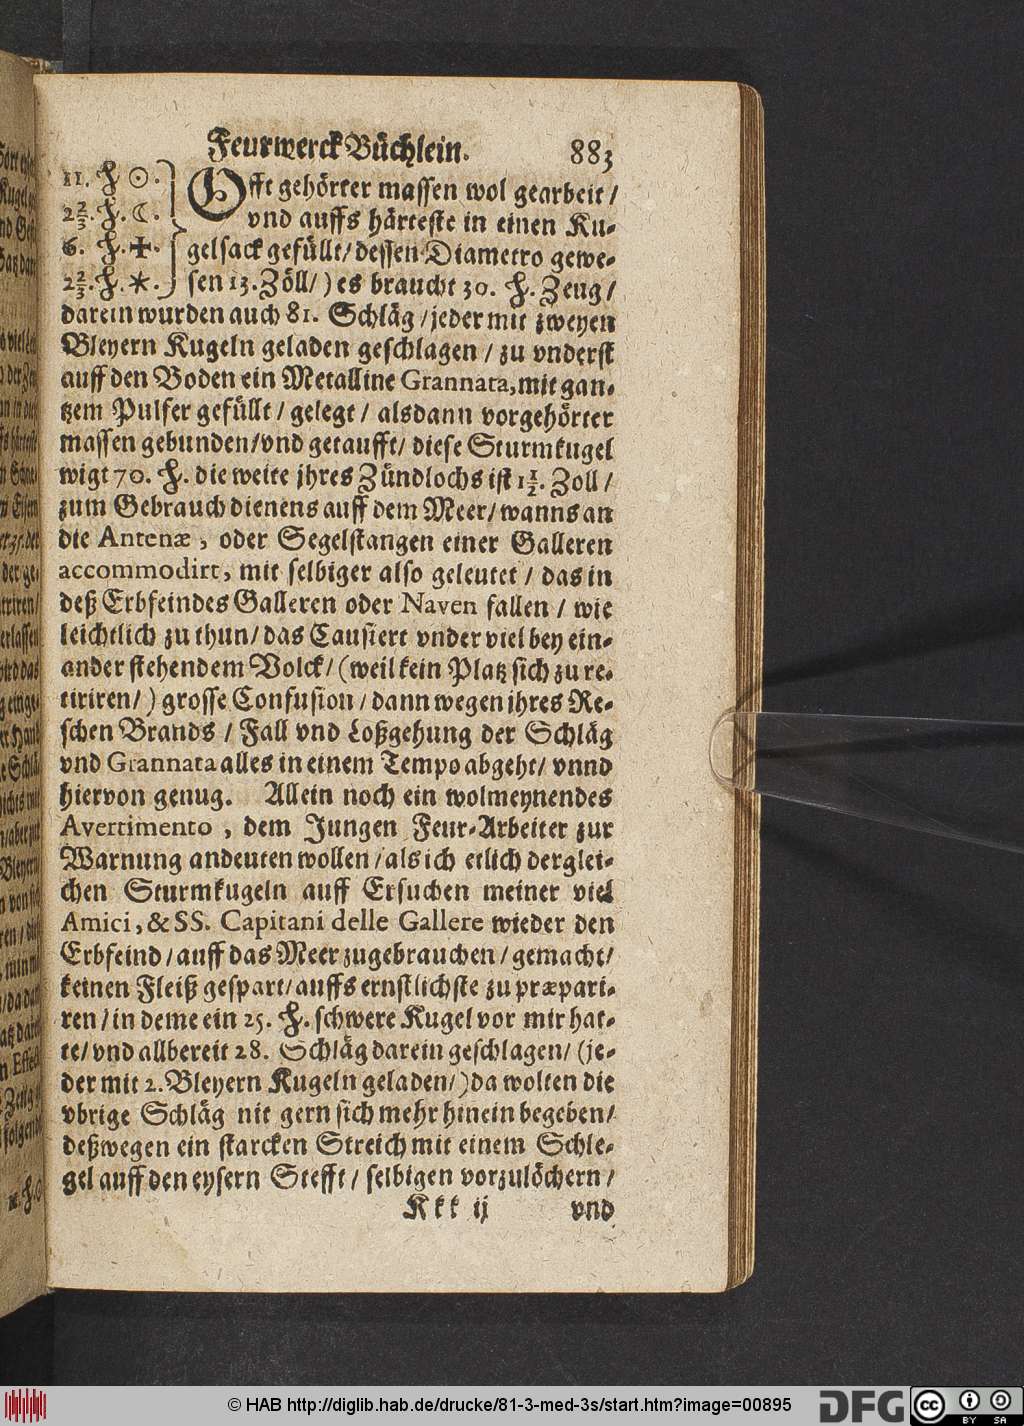 Feurwerck Büchlein. 883
11. ℔ ☉.
2⅔. ℔. ☾.
6. ℔. ✚.
2⅔. ℔. ✶.
Offt gehörter massen wol gearbeit /
vnd auffs härteste in einen Ku-
gelsack gefüllt / dessen Diametro gewe-
sen 13. Zöll / ) es braucht 30. ℔. Zeug /
darein wurden auch 81. Schläg / jeder mit zweyen
Bleyern Kugeln geladen geschlagen / zu vnderst
auff den Boden ein Metalline Grannata, mit gan-
tzem Pulfer gefüllt / gelegt / alsdann vorgehörter
massen gebunden / vnd getaufft / diese Sturmkugel
wigt 70. ℔. die weite jhres Zündlochs ist 1½. Zoll /
zum Gebrauch dienens auff dem Meer / wanns an
die Antenæ, oder Segelstangen einer Galleren
accommodirt, mit selbiger also geleutet / das in
deß Erbfeindes Galleren oder Naven fallen / wie
leichtlich zu thun / das Causiert vnder viel bey ein-
ander stehendem Volck / (weil kein Platz sich zu re-
tiriren / ) grosse Confusion / dann wegen ihres Re-
schen Brands / Fall vnd Loßgehung der Schläg
vnd Grannata alles in einem Tempo abgeht / vnnd
hiervon genug. Allein noch ein wolmeynendes
Avertimento, dem Jungen Feur-Arbeiter zur
Warnung andeuten wollen / als ich etlich derglei-
chen Sturmkugeln auff Ersuchen meiner viel
Amici, & SS. Capitani delle Gallere wieder den
Erbfeind / auff das Meer zugebrauchen / gemacht /
keinen Fleiß gespart / auffs ernstlichste zu præpari-
ren / in deme ein 25. ℔. schwere Kugel vor mir hat-
te / vnd allbereit 28. Schläg darein geschlagen / (je-
der mit 2. Bleyern Kugeln geladen / ) da wolten die
vbrige Schläg nit gern sich mehr hinein begeben /
deßwegen ein starcken Streich mit einem Schle-
gel auff den eysern Stefft / selbigen vorzulöchern /
Kkk ij vnd
© HAB http://diglib.hab.de/drucke/81-3-med-3s/start.htm?image=00895
DFG
cc
BY SA